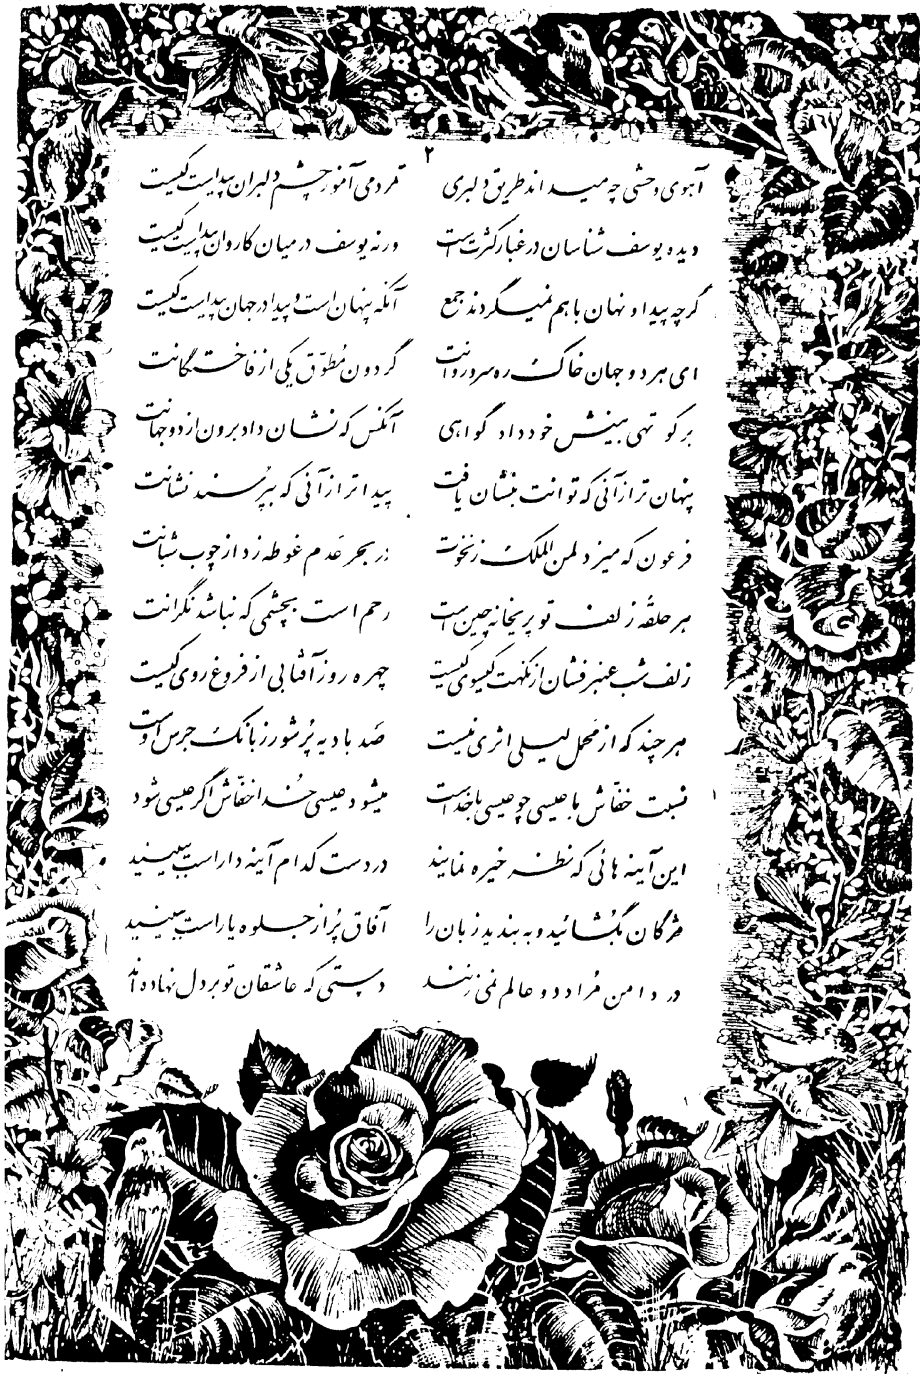 ۲
آهوی وحشی چه میداند طریق دلبری مردمی آموز چشم دلبران پیداست کیست
دیده یوسف شناسان در غبار کثرت است ورنه یوسف در میان کاروان پیداست کیست
گرچه پیدا و نهان با هم نمیگردند جمع آنکه پنهان است و پیدا در جهان پیداست کیست
ای هر دو جهان خاک ره سرو روانت گردون مُطوّق یکی از فاختگانت
بر کوتهی بینش خود داد گواهی آنکس که نشان داد برون از دو جهانت
پنهان تر از آنی که توانت بنشان یافت پیداتر از آنی که بپرسند نشانت
فرعون که میزد لمن الملک ز نخوت در بحر عَدم غوطه زد از چوب شبانت
هر حلقهٔ زلف تو پریخانه چین است رحم است بچشمی که نباشد نگرانت
زلف شب عنبر فشان از نکهت گیسوی کیست چهره روز آفتابی از فروغ روی کیست
هر چند که از مَحمل لیلی اثری نیست صَد بادیه پُر شور ز بانگ جرس اوست
نسبت خفّاش با عیسی چو عیسی با خداست میشود عیسی خُدا خفّاش اگر عیسی شود
این آینه هائی که نظر خیره نمایند در دست کدام آینه دار است ببینید
مژگان بگشائید و به بندید زبان را آفاق پُر از جلوه یار است ببینید
در دامن مُراد دو عالم نمی زنند دستی که عاشقان تو بر دل نهاده‌اند